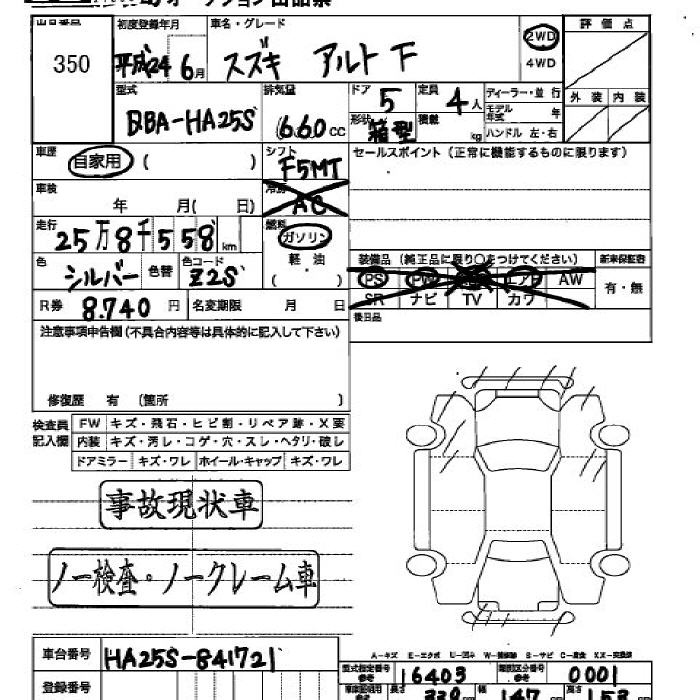 オークション出品票
出品番号 初度登録年月 車名・グレード 評価点
350 平成24 6月 スズキ アルト F 2WD 4WD
型式 排気量 ドア 定員 ディーラー・並行 外装 内装
DBA-HA25S 660 cc 5 4人 モデル年式 年
形状 箱型 積載 kg ハンドル 左・右
車歴 自家用 ( ) シフト F5MT セールスポイント (正常に機能するものに限ります)
車検 年 月( 日) 冷房 AC
走行 25万8千558km 燃料 ガソリン 軽油 ( )
色 シルバー 色替 色コード Z2S 装備品 (純正品に限り○をつけてください) 新車保証書
PS PW エアB AW 有・無
SR ナビ TV カワ
R券 8.740円 名変期限 月 日 後日品
注意事項申告欄(不具合内容等は具体的に記入して下さい)
修復歴 有 (箇所 )
検査員記入欄 FW キズ・飛石・ヒビ割・リペア跡・X要
内装 キズ・汚レ・コゲ・穴・スレ・ヘタリ・破レ
ドアミラー キズ・ワレ ホイール・キャップ キズ・ワレ
事故現状車
ノー検査・ノークレーム車
A-キズ E-エクボ U-凹み W-補修跡 S-サビ C-腐食 XX-交換済
車台番号 HA25S-841721 型式指定番号 参考 16403 類別区分番号 参考 0001
登録番号 長さ 339cm 幅 147 高さ 153